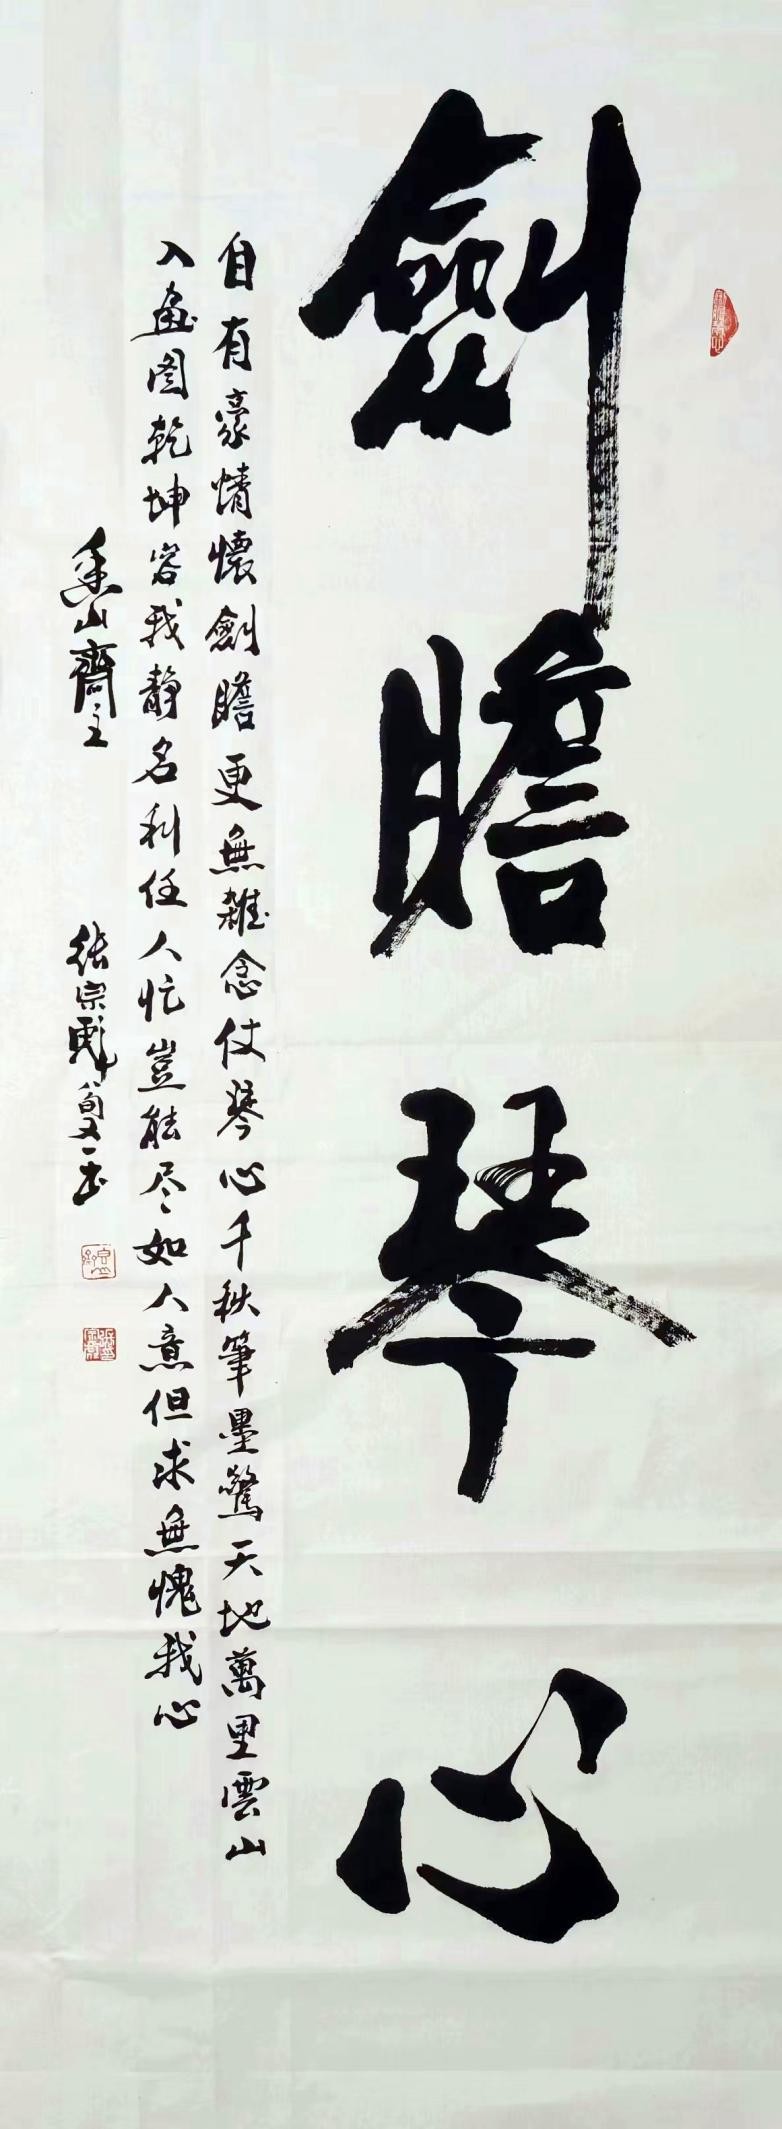 劍膽琴心
自有豪情懷劍膽更無雜念仗琴心千秋筆墨驚天地萬里雲山
入畫图乾坤容我静名利任人忙豈能尽如人意但求無愧我心
山齋主
張宗彪